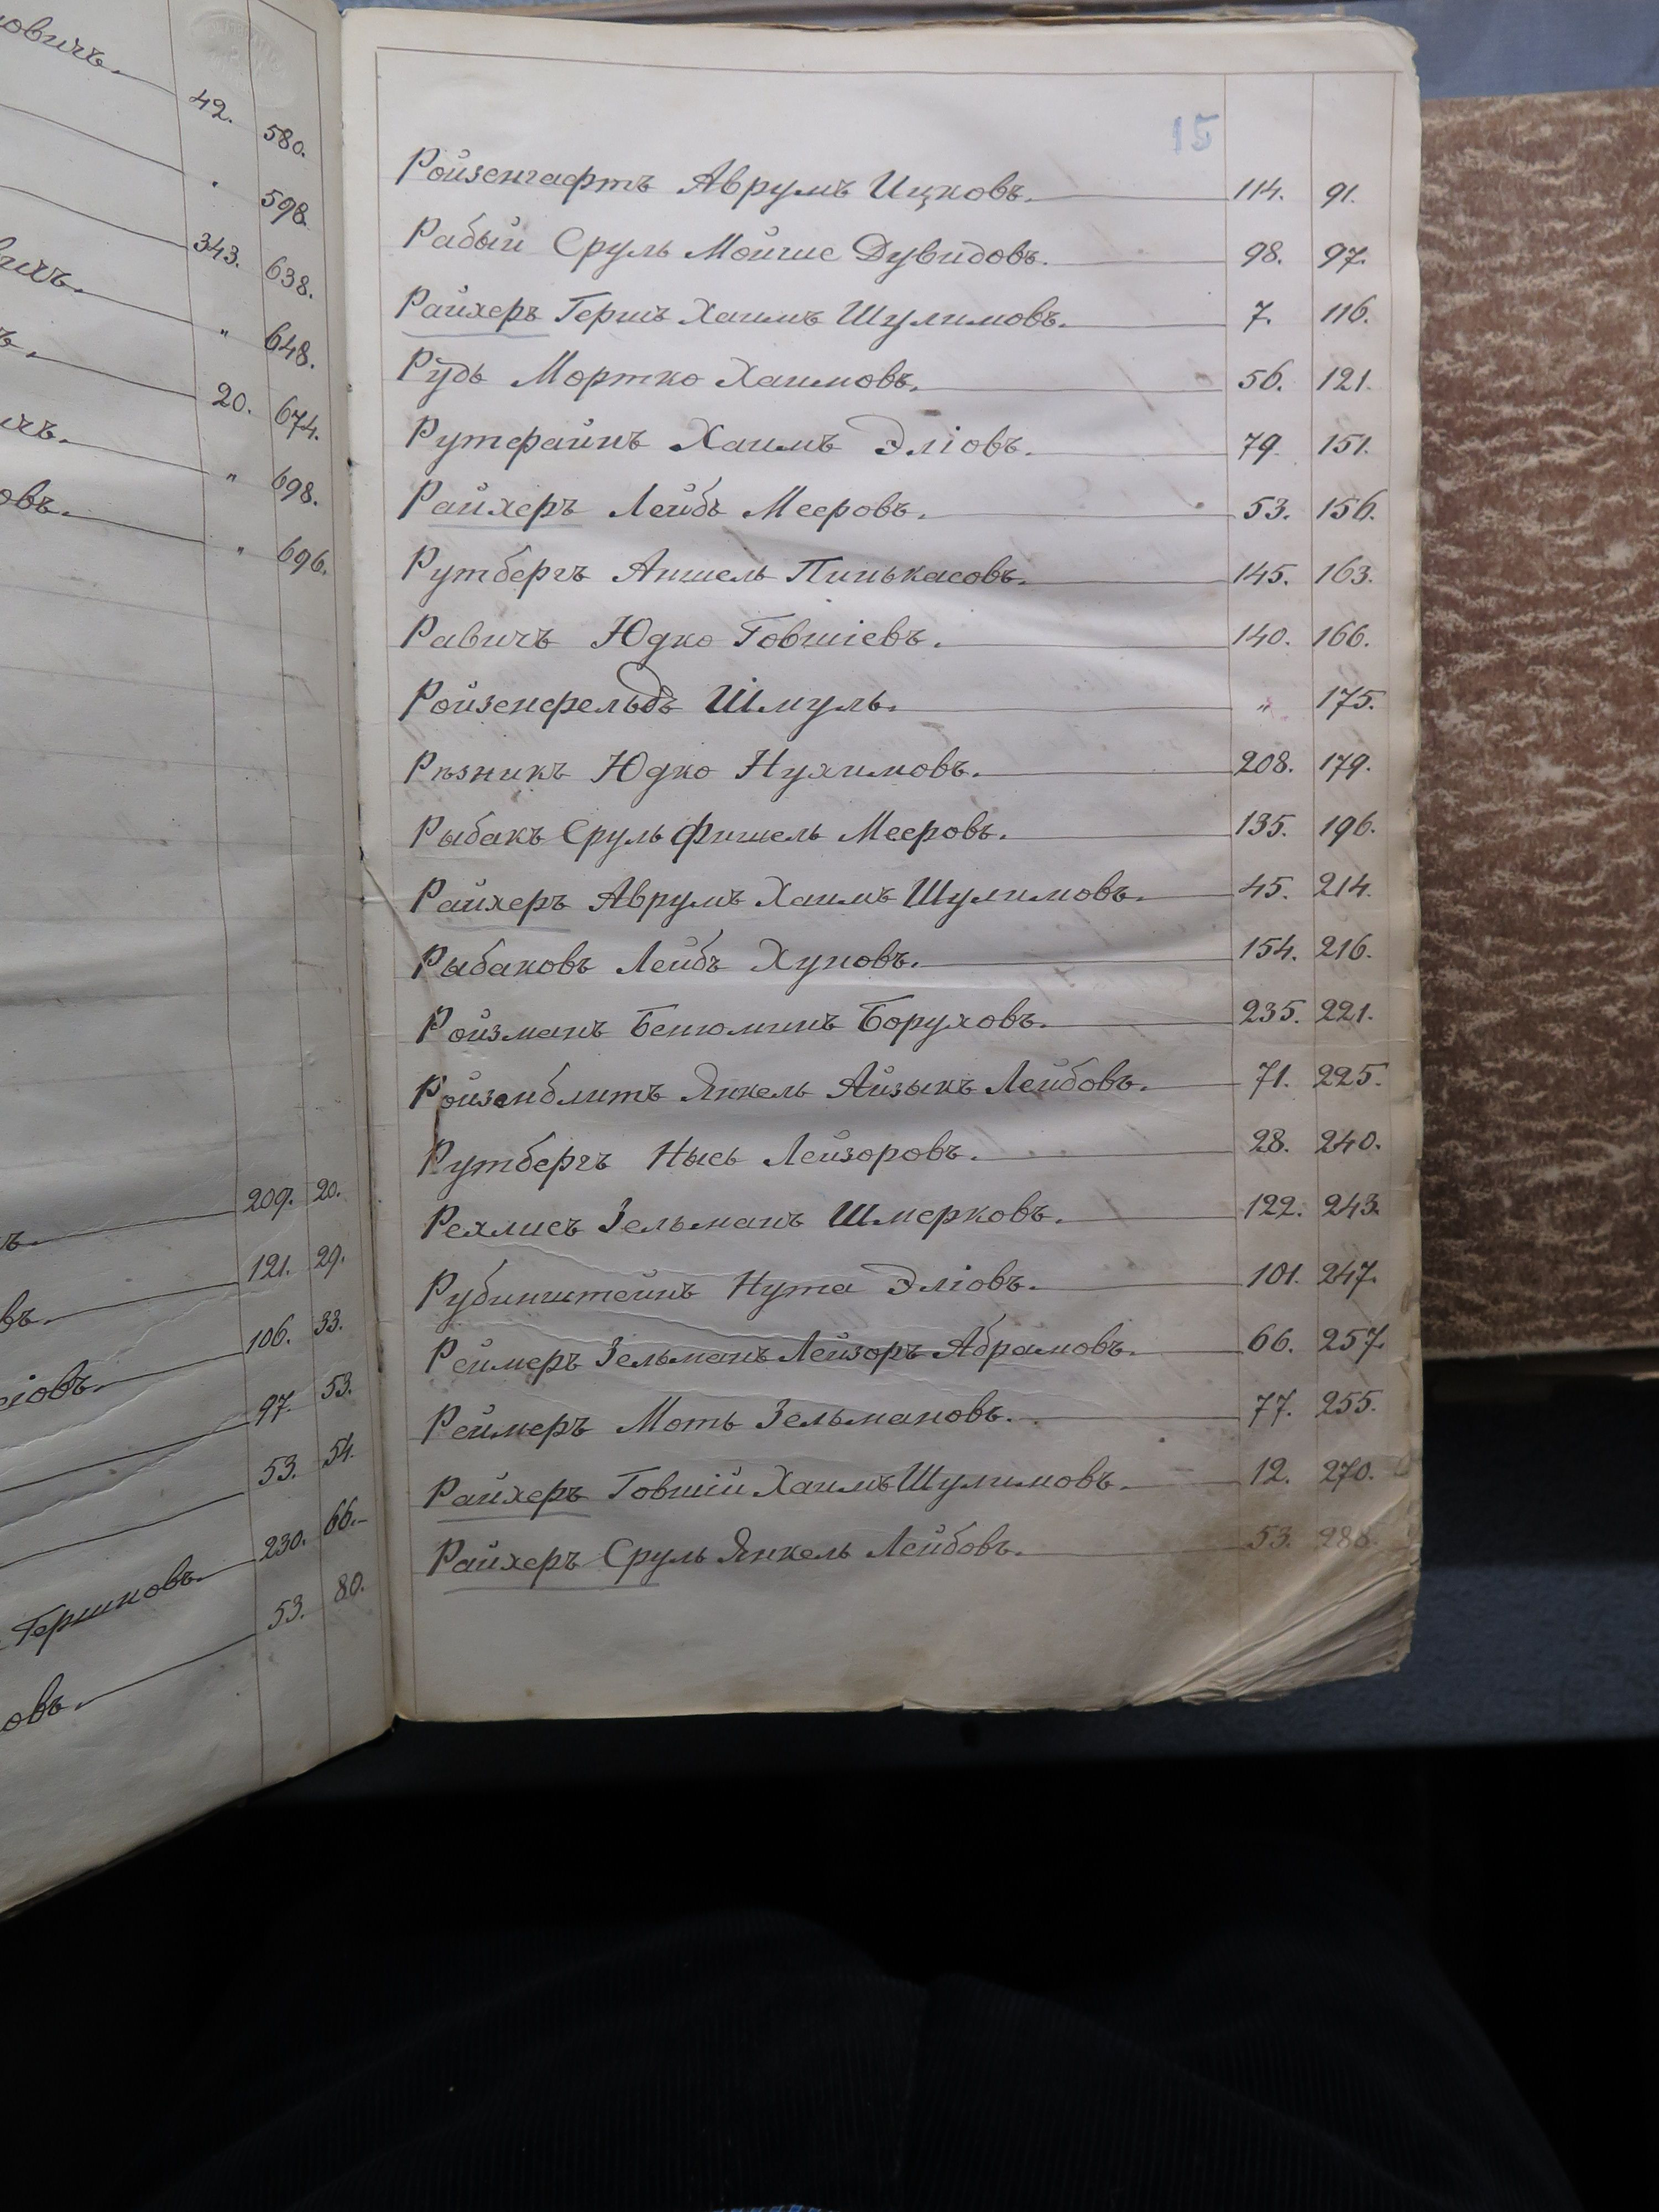 овичъ. 42. 580.
. 598.
343. 638.
вичъ. " 648.
ъ. 20. 674.
ичъ. " 698.
овъ. " 696.
ъ. 209. 20.
въ. 121. 29.
ріовъ. 106. 33.
97. 53.
53. 54.
Гершковъ. 230. 66.
овъ. 53. 80.
15
Ройзенгафтъ Аврумъ Ицковъ. 114. 91.
Рабый Сруль Мойше Дувидовъ. 98. 97.
Райхеръ Гершъ Хаимъ Шулимовъ. 7. 116.
Рудь Мортко Хаимовъ. 56. 121.
Рутфайнъ Хаимъ Эліовъ. 79. 151.
Райхеръ Лейбъ Мееровъ. 53. 156.
Рутбергъ Аншель Пинькасовъ. 145. 163.
Равичъ Юдко Говшіевъ. 140. 166.
Ройзенфельдъ Шмуль. " 175.
Рѣзникъ Юдко Нухимовъ. 208. 179.
Рыбакъ Сруль Фишель Мееровъ. 135. 196.
Райхеръ Аврумъ Хаимъ Шулимовъ. 45. 214.
Рыбаковъ Лейбъ Хуновъ. 154. 216.
Ройзманъ Бенюминъ Боруховъ. 235. 221.
Ройзенблитъ Янкель Айзыкъ Лейбовъ. 71. 225.
Рутбергъ Нысь Лейзоровъ. 28. 240.
Рехлисъ Зельманъ Шмерковъ. 122. 243.
Рубинштейнъ Нута Эліовъ. 101. 247.
Реймеръ Зельманъ Лейзоръ Абрамовъ. 66. 257.
Реймеръ Моть Зельмановъ. 77. 255.
Райхеръ Говшій Хаимъ Шулимовъ. 12. 270.
Райхеръ Сруль Янкель Лейбовъ. 53. 288.